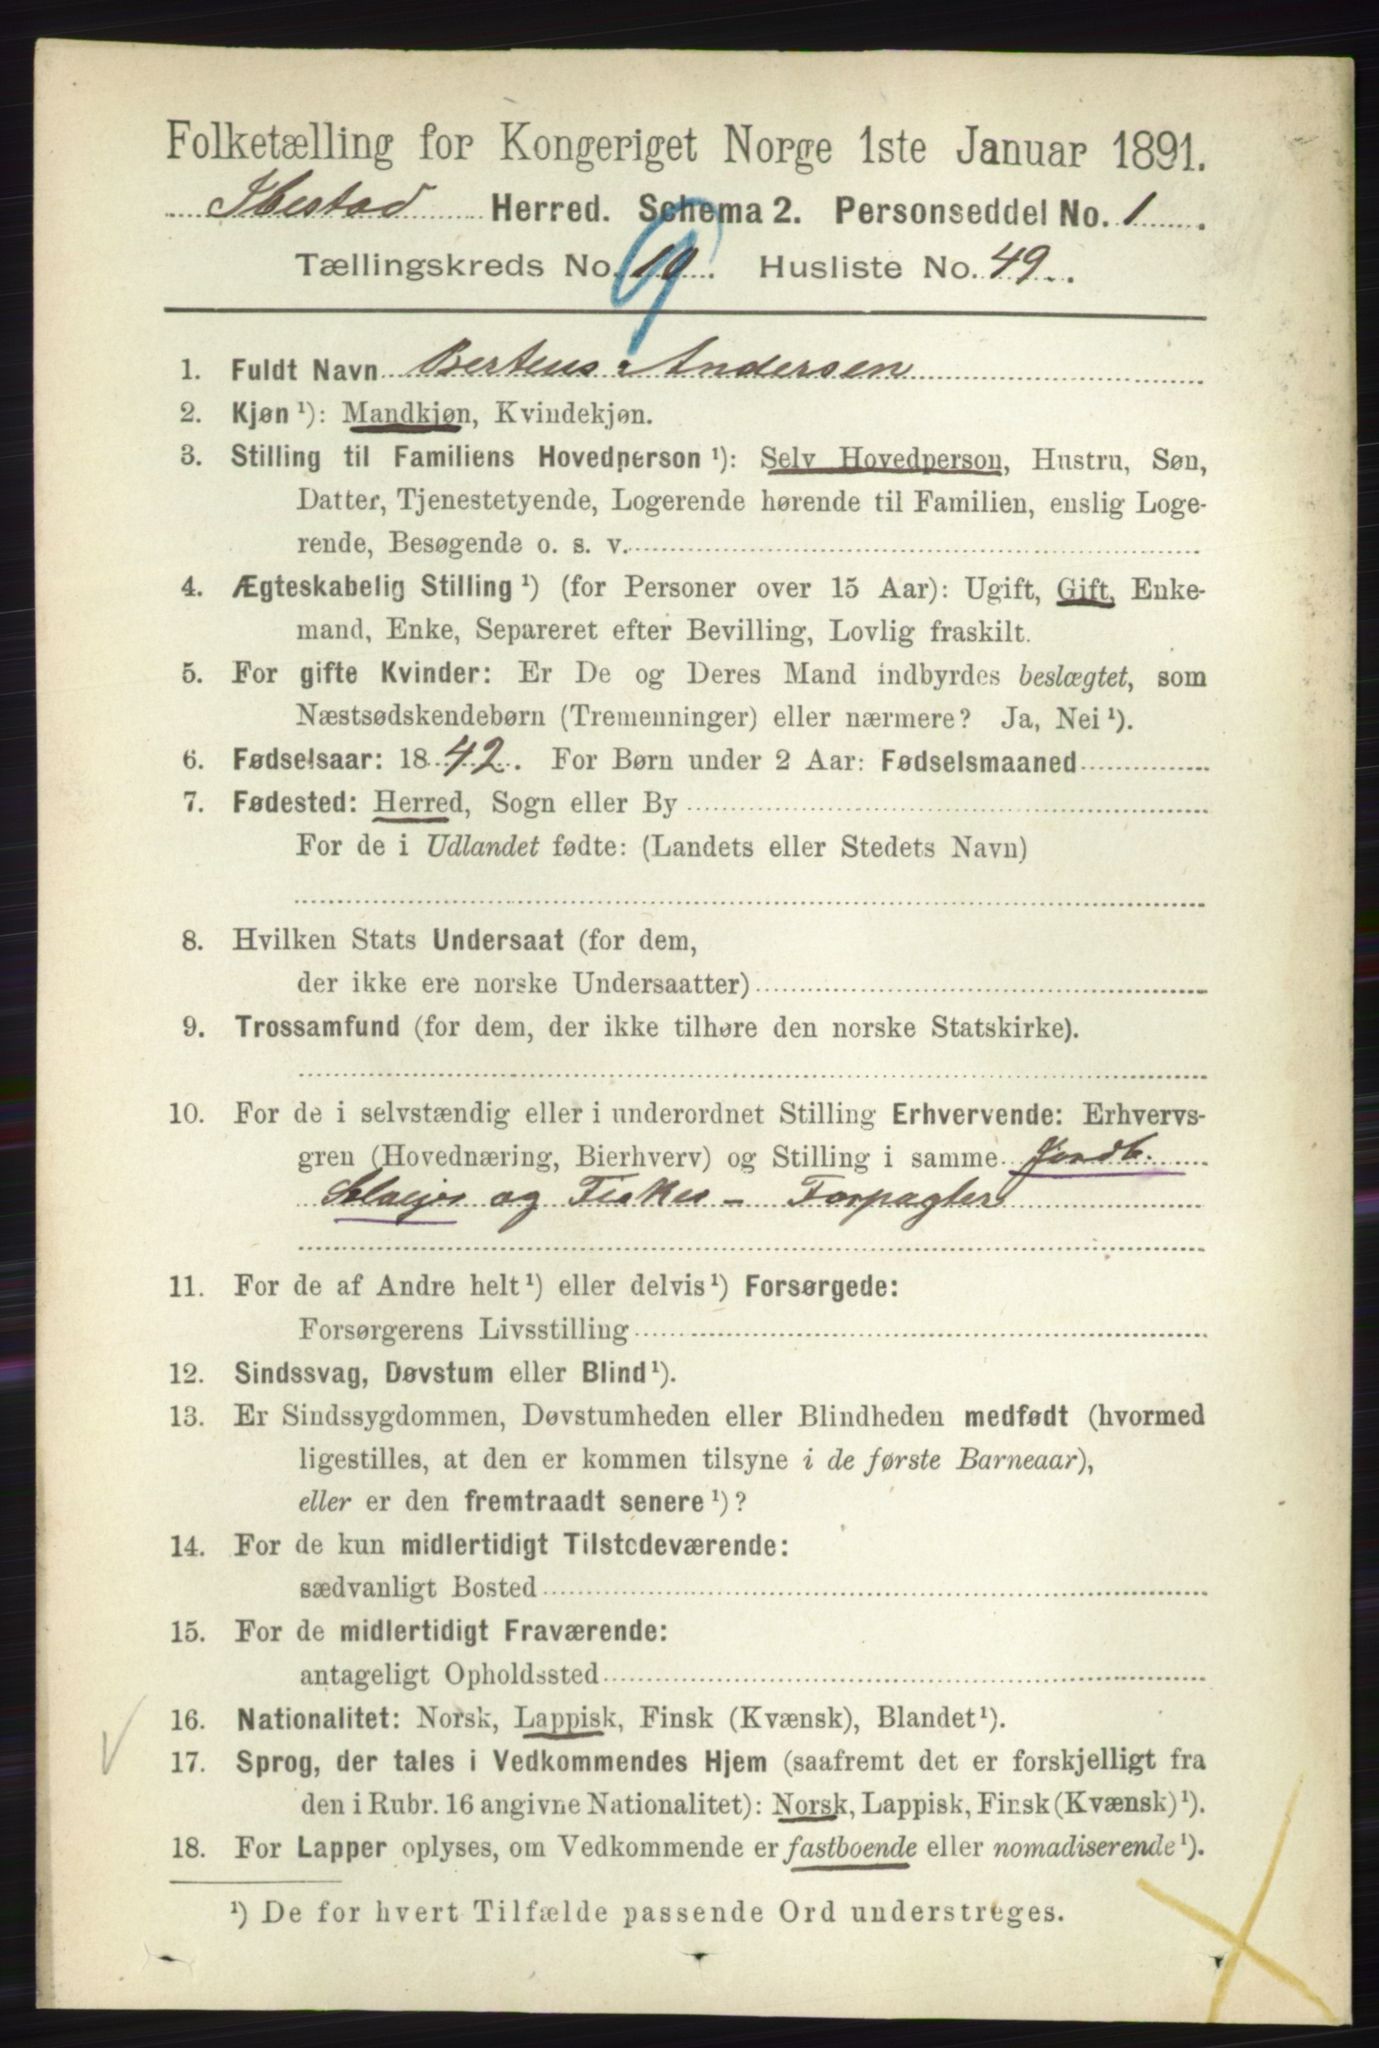 Folketælling for Kongeriget Norge 1ste Januar 1891.
Ibestad Herred. Schema 2. Personseddel No. 1.
Tællingskreds No. 10. Husliste No. 49.
9
1. Fuldt Navn Berteus Andersen
2. Kjøn ¹): Mandkjøn, Kvindekjøn.
3. Stilling til Familiens Hovedperson ¹): Selv Hovedperson, Hustru, Søn,
Datter, Tjenestetyende, Logerende hørende til Familien, enslig Loge-
rende, Besøgende o. s. v.
4. Ægteskabelig Stilling ¹) (for Personer over 15 Aar): Ugift, Gift, Enke-
mand, Enke, Separeret efter Bevilling, Lovlig fraskilt.
5. For gifte Kvinder: Er De og Deres Mand indbyrdes beslægtet, som
Næstsødskendebørn (Tremenninger) eller nærmere? Ja, Nei ¹).
6. Fødselsaar: 1842. For Børn under 2 Aar: Fødselsmaaned
7. Fødested: Herred, Sogn eller By
For de i Udlandet fødte: (Landets eller Stedets Navn)
8. Hvilken Stats Undersaat (for dem,
der ikke ere norske Undersaatter)
9. Trossamfund (for dem, der ikke tilhøre den norske Statskirke).
10. For de i selvstændig eller i underordnet Stilling Erhvervende: Erhvervs-
gren (Hovednæring, Bierhverv) og Stilling i samme Jordb.
Selvejer og Fisker – Forpagter
11. For de af Andre helt ¹) eller delvis ¹) Forsørgede:
Forsørgerens Livsstilling
12. Sindssvag, Døvstum eller Blind ¹).
13. Er Sindssygdommen, Døvstumheden eller Blindheden medfødt (hvormed
ligestilles, at den er kommen tilsyne i de første Barneaar),
eller er den fremtraadt senere ¹)?
14. For de kun midlertidigt Tilstedeværende:
sædvanligt Bosted
15. For de midlertidigt Fraværende:
antageligt Opholdssted
16. Nationalitet: Norsk, Lappisk, Finsk (Kvænsk), Blandet ¹).
17. Sprog, der tales i Vedkommendes Hjem (saafremt det er forskjelligt fra
den i Rubr. 16 angivne Nationalitet): Norsk, Lappisk, Finsk (Kvænsk) ¹).
18. For Lapper oplyses, om Vedkommende er fastboende eller nomadiserende ¹).
¹) De for hvert Tilfælde passende Ord understreges.